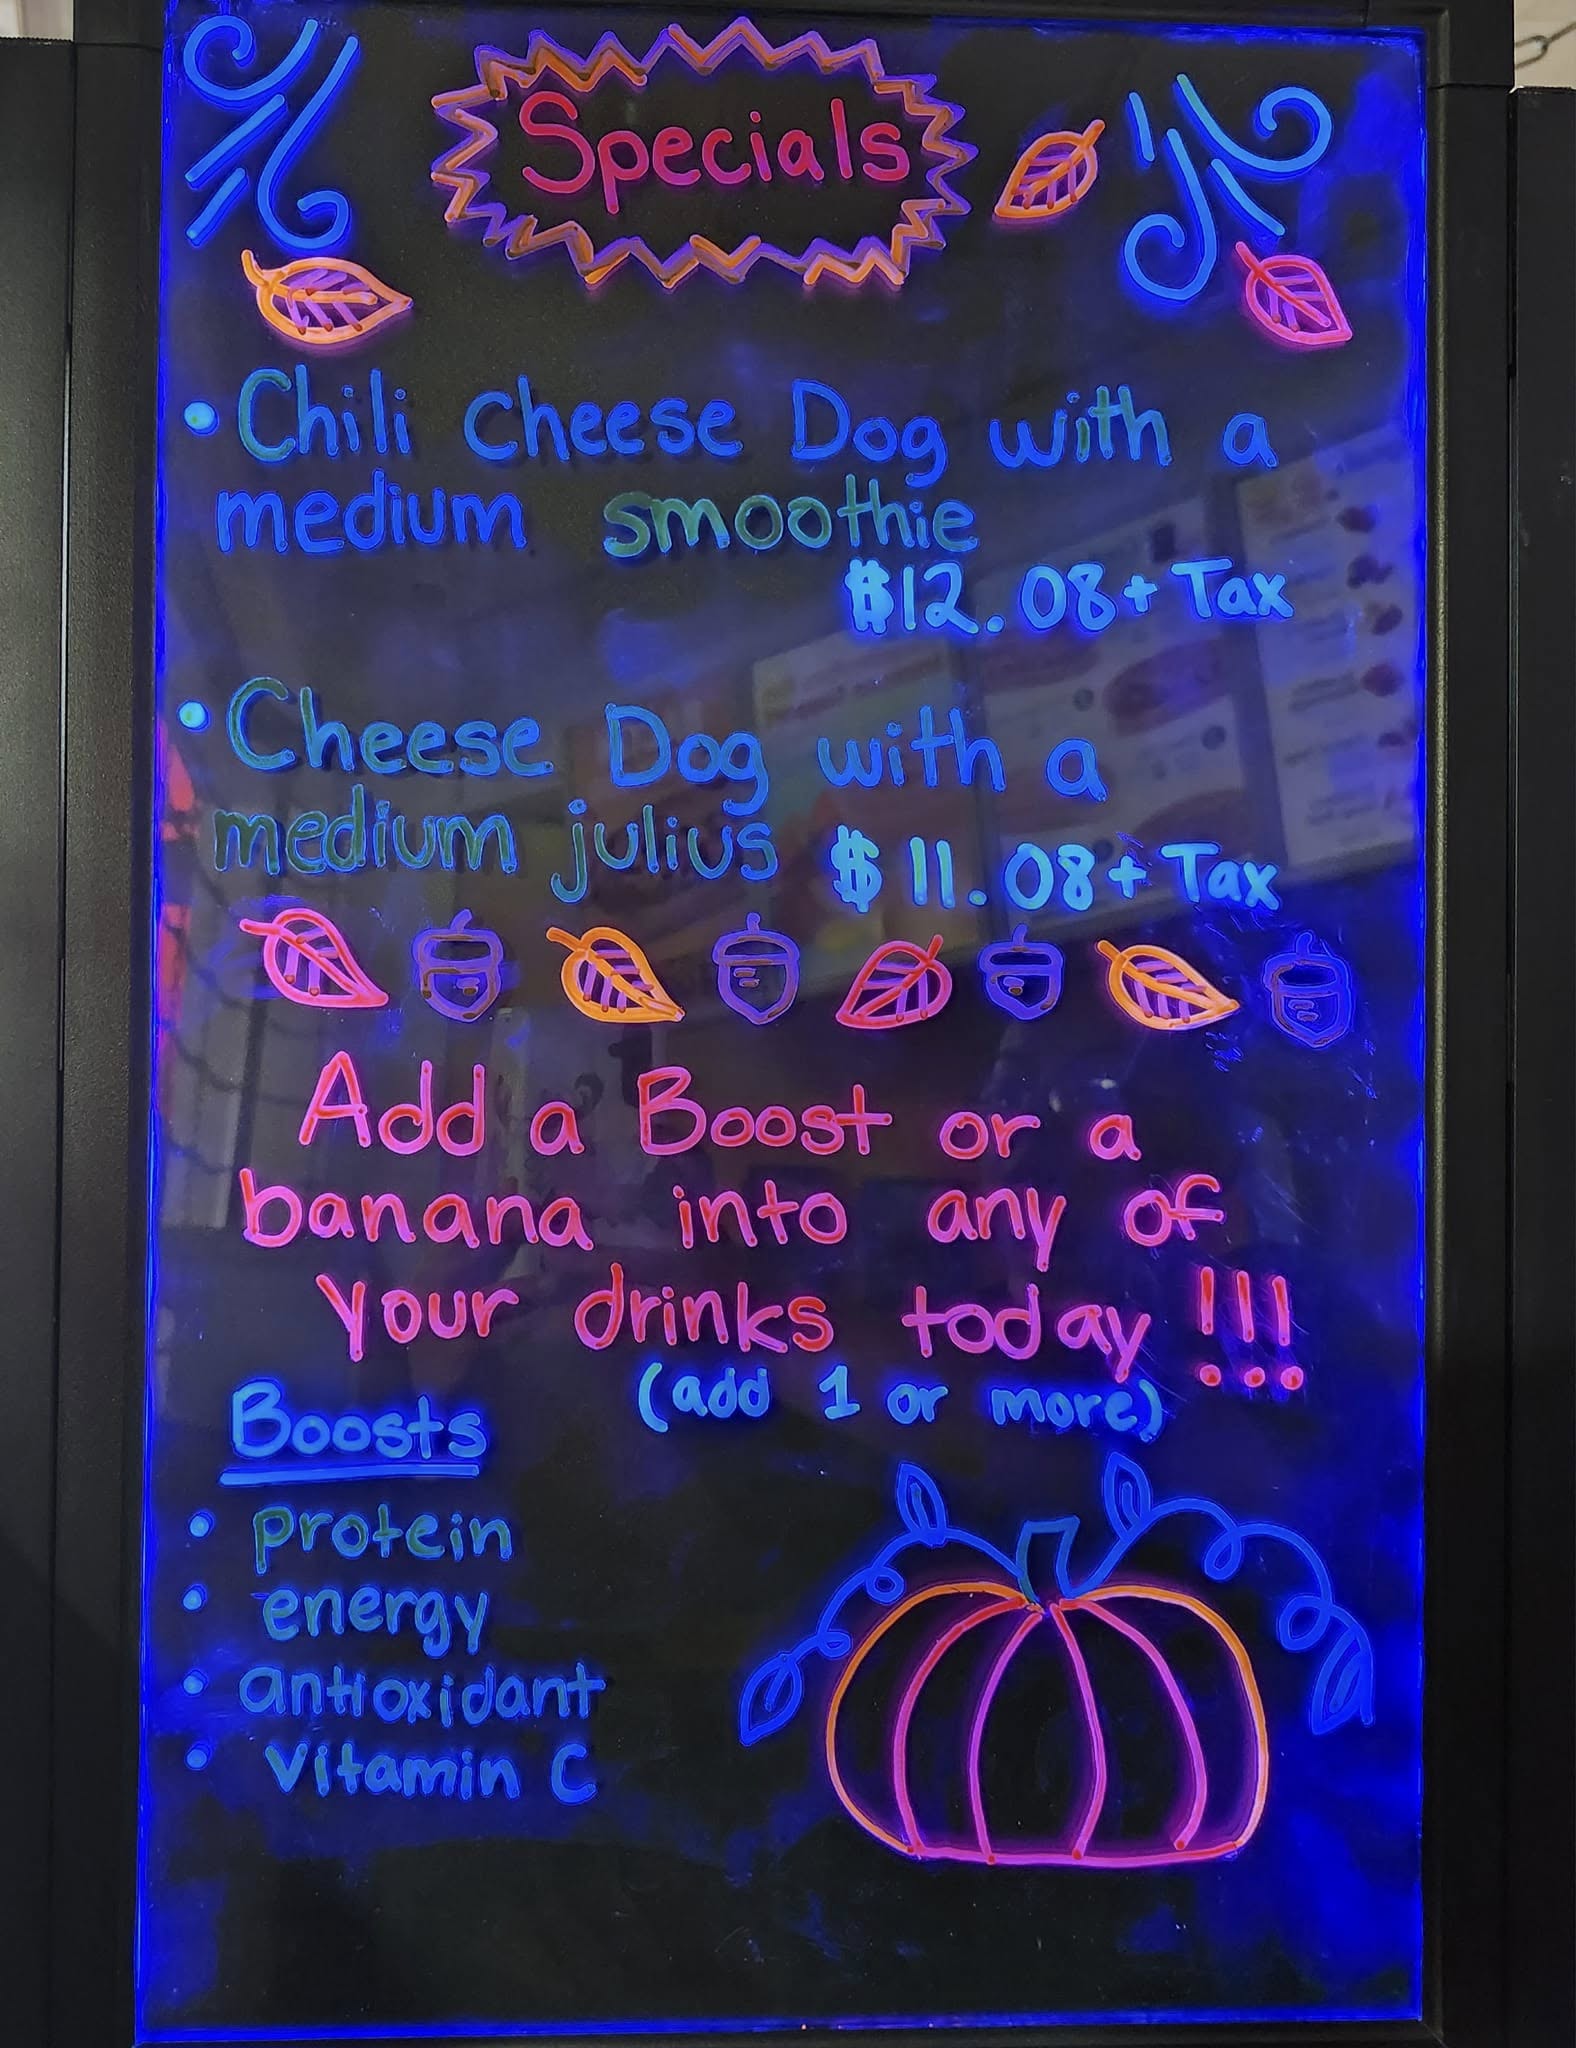 Specials
• Chili Cheese Dog with a
medium smoothie
$12.08+ Tax
• Cheese Dog with a
medium julius $11.08+ Tax
Add a Boost or a
banana into any of
your drinks today !!!
(add 1 or more)
Boosts
• protein
• energy
• antioxidant
• Vitamin C